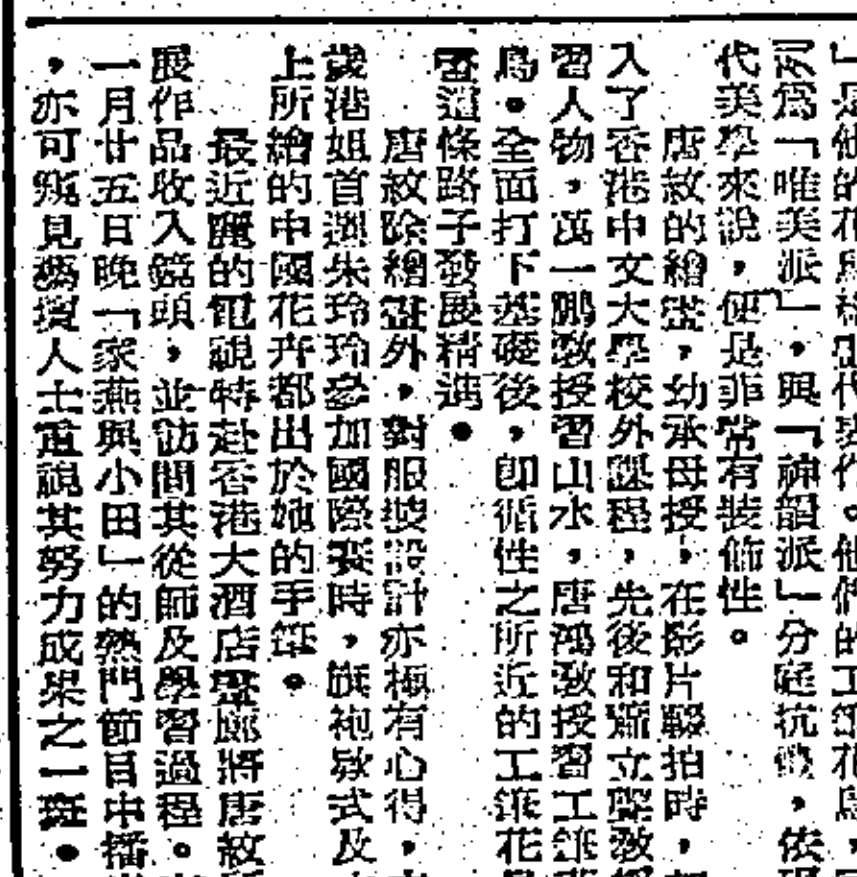 」是他的花鳥
列為「唯美派」，與「神韻派」分庭抗
代美學來說，便是非常有裝飾性。
唐紋的繪畫，幼承母授，在影片輟拍時，
入了香港中文大學校外課程，先後和
習人物，萬一鵬教授習山水，唐鴻教授習工筆
鳥。全面打下基礎後，即循性之所近的工筆花
香這條路子發展精進。
唐紋除繪畫外，對服裝設計亦極有心得，
歲港姐首選朱玲玲參加國際賽時，旗袍款式及
上所繪的中國花卉都出於她的手筆。
最近麗的電視特赴香港大酒店畫廊將唐紋
展作品收入鏡頭，並訪問其從師及學習過程。
一月廿五日晚「家燕與小田」的熱門節目中播
，亦可窺見人士重視其努力成果之一斑。